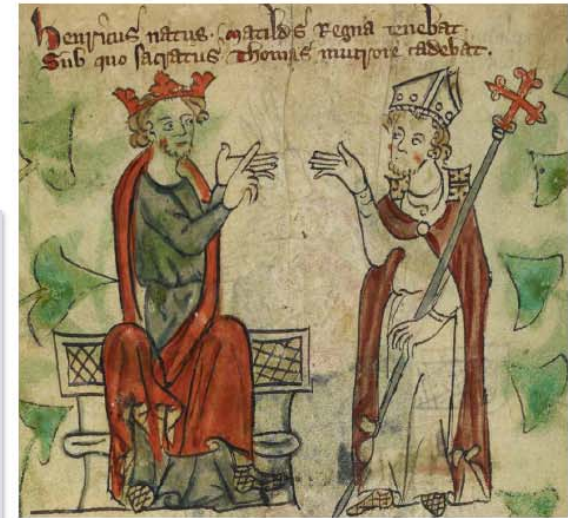 Henricus natus Matildis Regna tenebat
Sub quo sacratus Thomas mucrone cadebat.